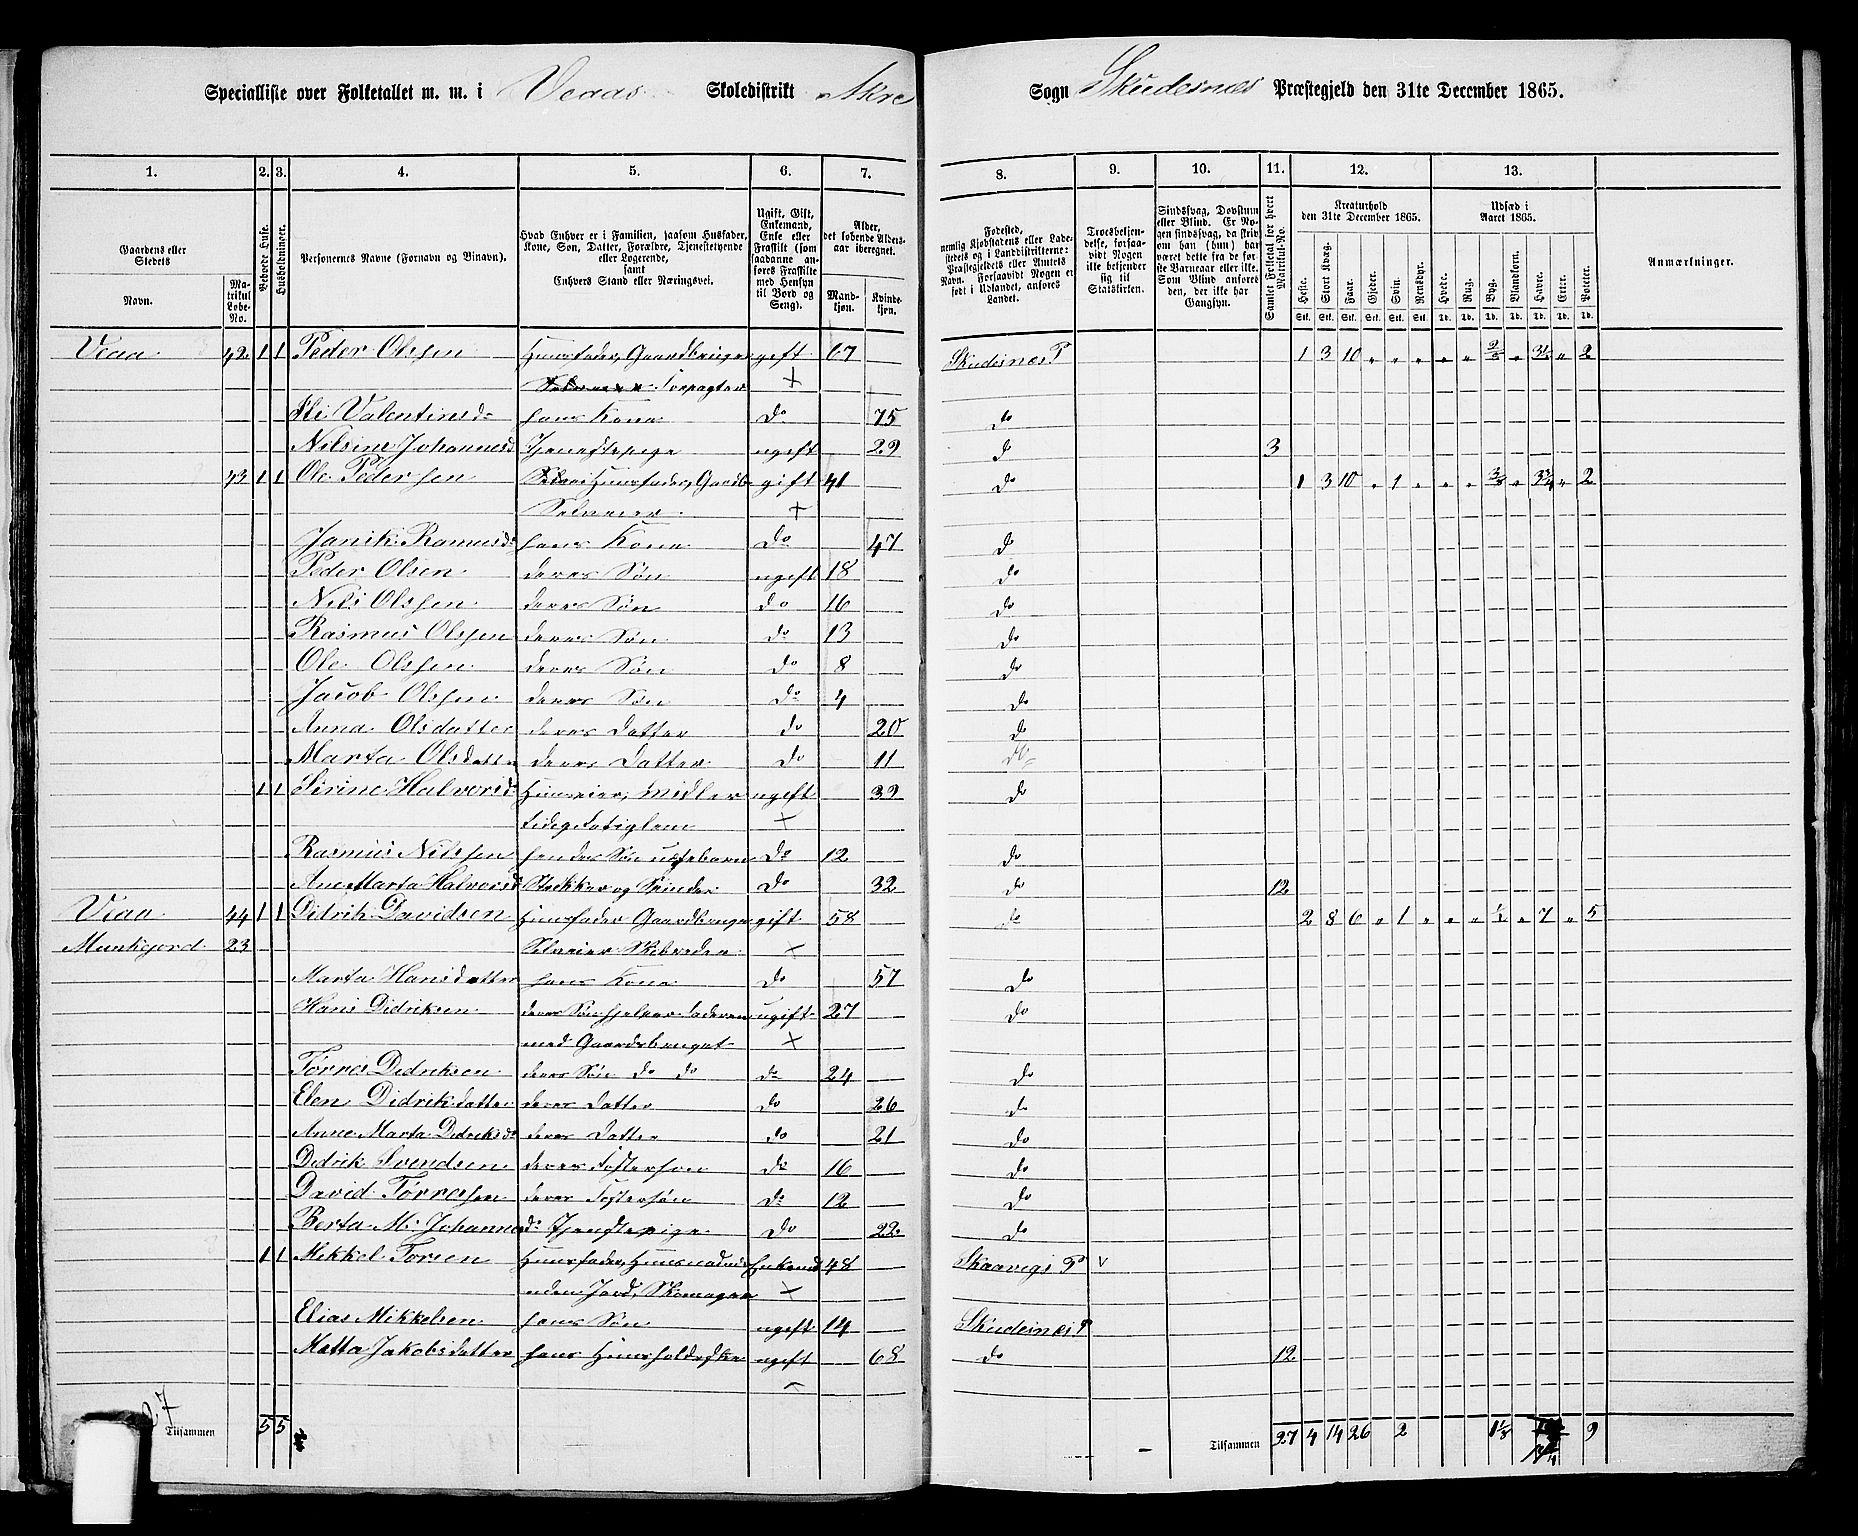 Specialliste over Folketallet m. m. i Veaas Skoledistrikt Akre Sogn Skudesnæs Præstegjeld den 31te December 1865.
1. 2. 3. 4. 5. 6. 7. 8. 9. 10. 11. 12. 13.
Gaardens eller Stedets
Navn.
Matrikul Løbe-No.
Beboede Huse.
Husholdninger.
Personernes Navne (Fornavn og Binavn).
Hvad Enhver er i Familien, saasom Husfader, Kone, Søn, Datter, Forældre, Tjenestetyende eller Logerende, samt Enhvers Stand eller Næringsvei.
Ugift, Gift, Enkemand, Enke eller Fraskilt (som saadanne anføres Fraskilte med Hensyn til Bord og Seng).
Alder, det løbende Aldersaar iberegnet.
Mandkjøn. Kvindekjøn.
Fødested, nemlig Kjøbstadens eller Ladestedets og i Landdistrikterne: Præstegjeldets eller Amtets Navn. Forsaavidt Nogen er født i Udlandet, anføres Landet.
Troesbekjendelse, forsaavidt Nogen ikke bekjender sig til Statskirken.
Sindssvag, Døvstum eller Blind. Er Nogen sindssvag, da skriv om han (hun) har været dette fra de første Barneaar eller ikke. Som Blind anføres den, der ikke har Gangsyn.
Samlet Folketal for hvert Matrikul-No.
Kreaturhold den 31te December 1865.
Heste. Stort Kvæg. Faar. Gjeder. Svin. Rensdyr.
Stk. Stk. Stk. Stk. Stk. Stk.
Udsæd i Aaret 1865.
Hvede. Rug. Byg. Blandkorn. Havre. Erter. Poteter.
Td. Td. Td. Td. Td. Td. Td.
Anmærkninger.
Veaa 42 1 1 Peder Olssen Huusfader, Gaardbruger gift 67 Skudesnæs P 1 3 10 " " " " " 2/8 " 3½ " 2
Selveier Forpagter +
Valentinsd hans Kone do 75 do
Nilsine Johannesd Tjenestepige ugift 29 d 3
43 1 1 Ole Pedersen Huusfader, Gaardb gift 41 do 1 3 10 " 1 " " " 3/8 " " 2
Selveier +
Janik Ramusd hans Kone Do 47 d
Peder Olsen deres Søn ugift 18 do
Nils Olssen deres Søn do 16 do
Rasmus Olssen deres Søn do 13 do
Ole Olssen deres Søn do 8 do
Jacob Olssen deres Søn do 4 do
Anna Olsdatter deres Datter do 20 do
Marta Olsdatter deres Datter do 11 do
1 1 Sirine Halvorsd Huuseier, midler ugift 39 do
tidig Fatiglem +
Rasmus Nilssen hendes Søn uægteborn Do 12 do
Ane Marta Halvorsd Strikker og Spinder Do 32 do 12
Veaa 44 1 1 Didrik Davidsen Huusfader Gaardbruger gift 58 do 2 8 6 " 1 " " " ½ " 7 " 5
Munkejord 23 Selveier Skibsreder +
Marta Hansdatter hans Kone do 57 do
Hans Didriksen deres Søn hjelper Faderen ugift 27 do
med Gaardsbruget +
Tørres Didriksen deres Søn do do do 24 do
Elen Didriksdatter deres Datter do 26 do
Anne Marta Didriksd deres Datter do 21 do
Didrik Svendsen deres Fostersøn do 16 do
David Tørresen deres Fostersøn do 12 do
Berta M. Johannesd Tjenestepige do 22 do
1 1 Mikkel Torsen Huusfader, Huusmand Enkemd 48 P v
uden Jord, Skomager +
Elias Mikkelsen hans Søn ugift 14 Skudesnæs P
Metta Jakobsdatter hans ugift 68 do 12
27
Tilsammen 5 5
Tilsammen 27 4 14 26 2 1⅛ 9